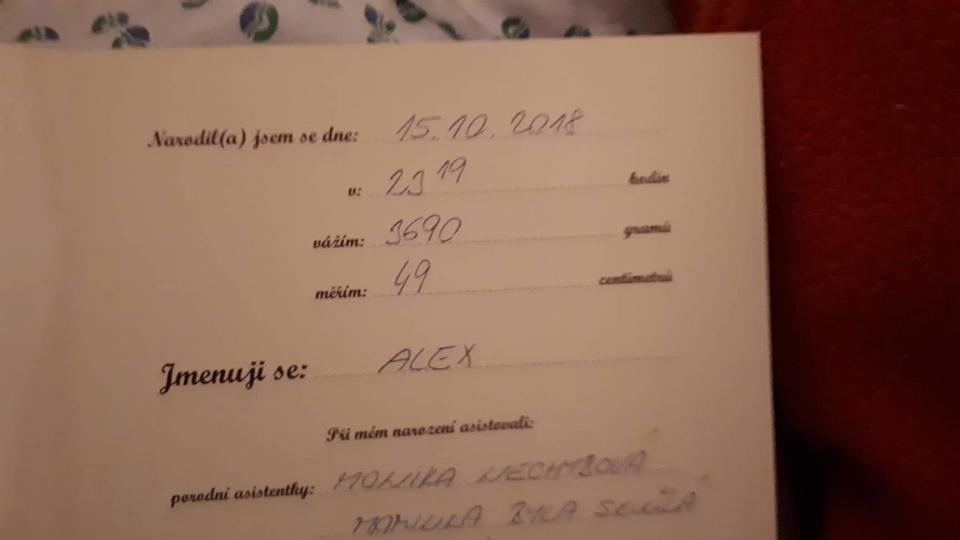 Narodil(a) jsem se dne: 15.10.2018
v: 23 19 hodin
vážím: 3690 gramů
měřím: 49 centimetrů
Jmenuji se: ALEX
Při mém narození asistovali:
porodní asistentky: MONIKA NECHYBOVÁ
MAMINKA BYLA